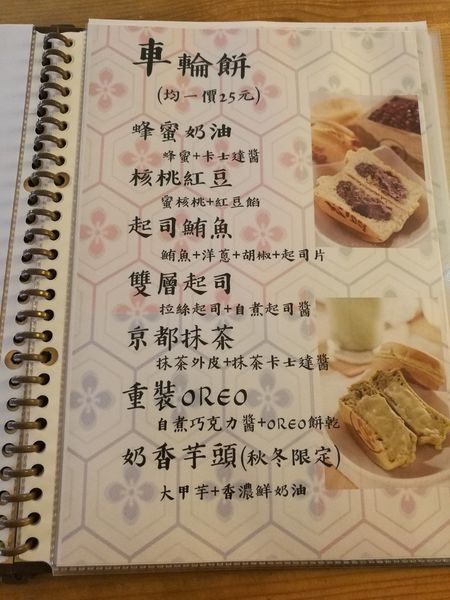 車輪餅
(均一價25元)
蜂蜜奶油
蜂蜜+卡士達醬
核桃紅豆
蜜核桃+紅豆餡
起司鮪魚
鮪魚+洋蔥+胡椒+起司片
雙層起司
拉絲起司+自煮起司醬
京都抹茶
抹茶外皮+抹茶卡士達醬
重裝OREO
自煮巧克力醬+OREO餅乾
奶香芋頭(秋冬限定)
大甲芋+香濃鮮奶油